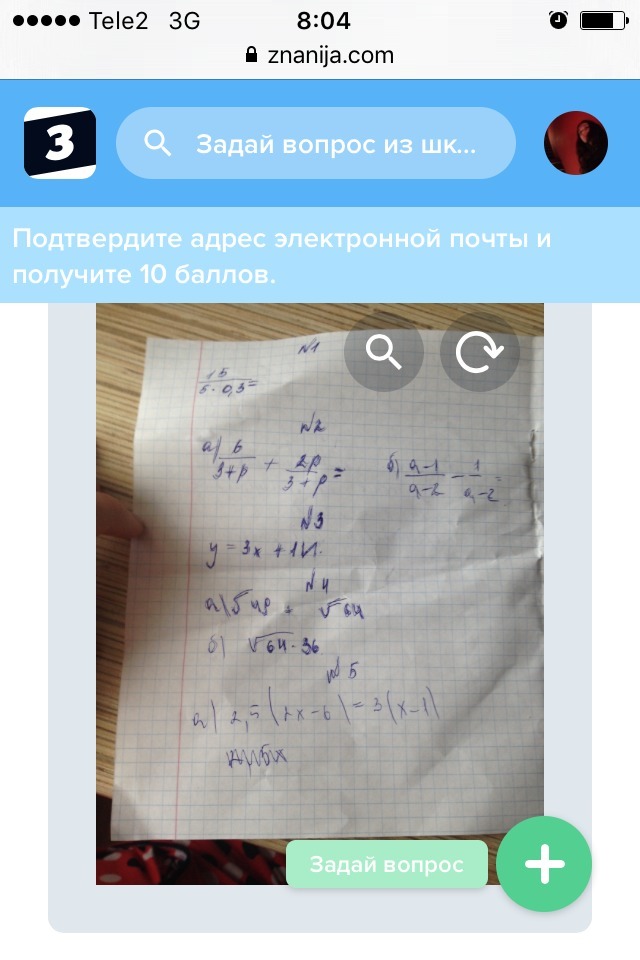 Tele2 3G 8:04
znanija.com
З Задай вопрос из шк...
Подтвердите адрес электронной почты и
получите 10 баллов.
№1
15
5 · 0,3 =
№2
а) 6/3+p + 2p/3+p = б) a-1/a-2 - 1/a-2 =
№3
y = 3x + 1
№4
а) √49 + √64
б) √64·36
№5
а) 2,5(2x-6) = 3(x-1)
Задай вопрос